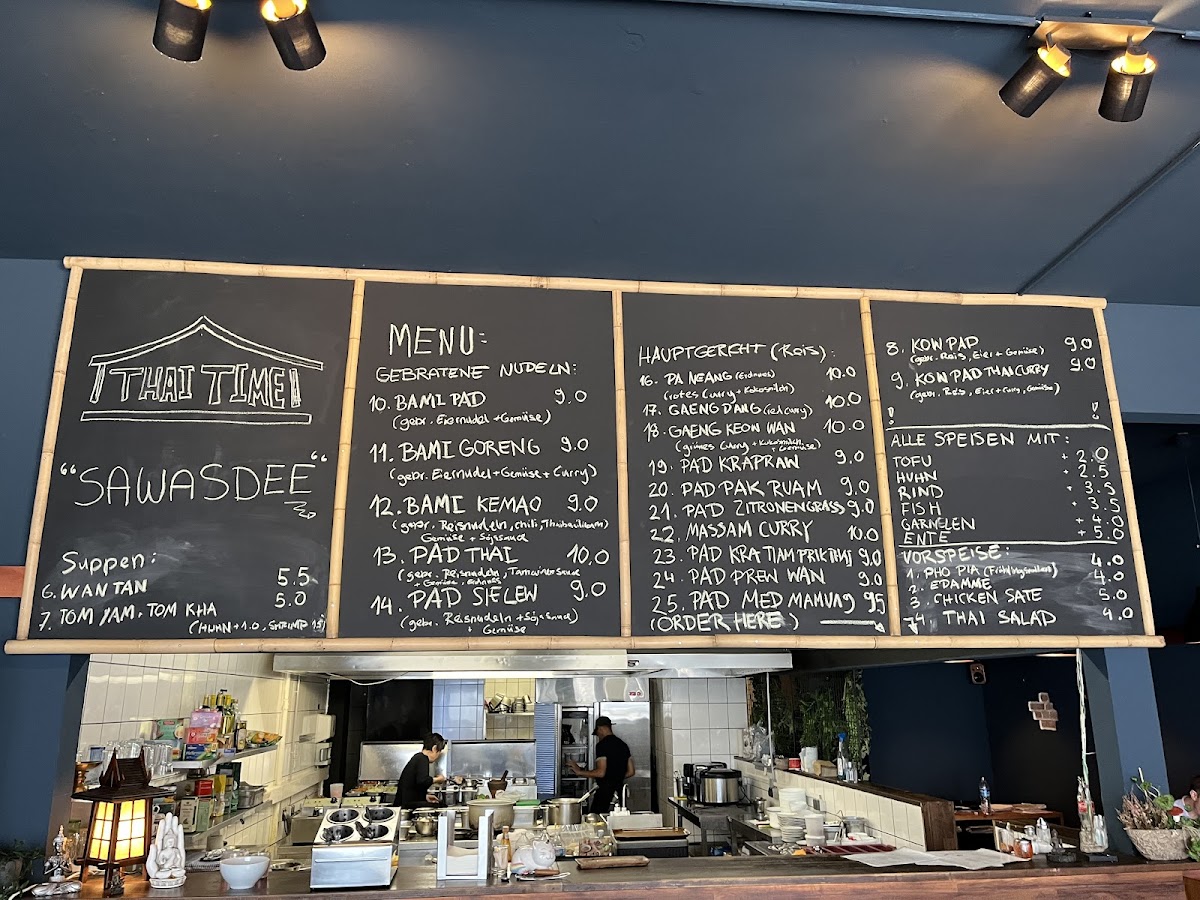 THAI TIME!
"SAWASDEE"
Suppen:
6. WAN TAN 5.5
7. TOM YAM. TOM KHA 5.0
(HUHN +1.0, SHRIMP 1.5)
MENU:
GEBRATENE NUDELN:
10. BAMI PAD 9.0
(gebr. Eiernudel + Gemüse)
11. BAMI GORENG 9.0
(gebr. Eiernudel + Gemüse + Curry)
12. BAMI KEMAO 9.0
(gebr. Reisnudeln, chili, Thaibasilikum
Gemüse + Sojasauce
13. PAD THAI 10.0
(gebr. Reisnudeln, Tamarindsauce
Gemüse, erdness
14. PAD SIELEW 9.0
(gebr. Reisnudeln + Sojasauce)
+ Gemüse
HAUPTGERICHT (Reis):
16. PA NEANG (Erdnuss) 10.0
(rotes Curry + Kokosmilch)
17. GAENG DANG (red curry) 10.0
18. GAENG KEOW WAN 10.0
(grünes Curry + Kokosmilch + Gemüse)
19. PAD KRAPRAW 9.0
20. PAD PAK RUAM 9.0
21. PAD ZITRONENGRASS 9.0
22. MASSAM CURRY 10.0
23. PAD KRA TIAM PRIK THAJ 9.0
24. PAD PREW WAN 9.0
25. PAD MED MAMUNG 95
(ORDER HERE)
8. KOW PAD 9.0
(gebr. Reis, Eier + Gemüse)
9. KOW PAD THAI CURRY 9.0
(gebr. Reis, Eier + Curry, Gemüse)
! !
ALLE SPEISEN MIT:
TOFU + 2.0
HUHN + 2.5
RIND + 3.5
FISH + 3.5
GARNELEN + 4.0
ENTE + 5.0
VORSPEISE:
1. PHO PIA (Frühlingsrollen) 4.0
2. EDAMME 4.0
3. CHICKEN SATE 5.0
4. THAI SALAD 4.0